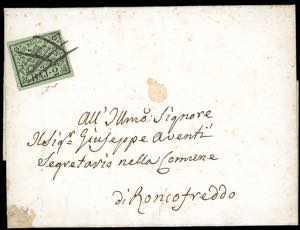 BAJ. 2
All'Illmo: Signore
Il Sigr. Giuseppe Aventi
Segretario nella Comune
di Roncofreddo